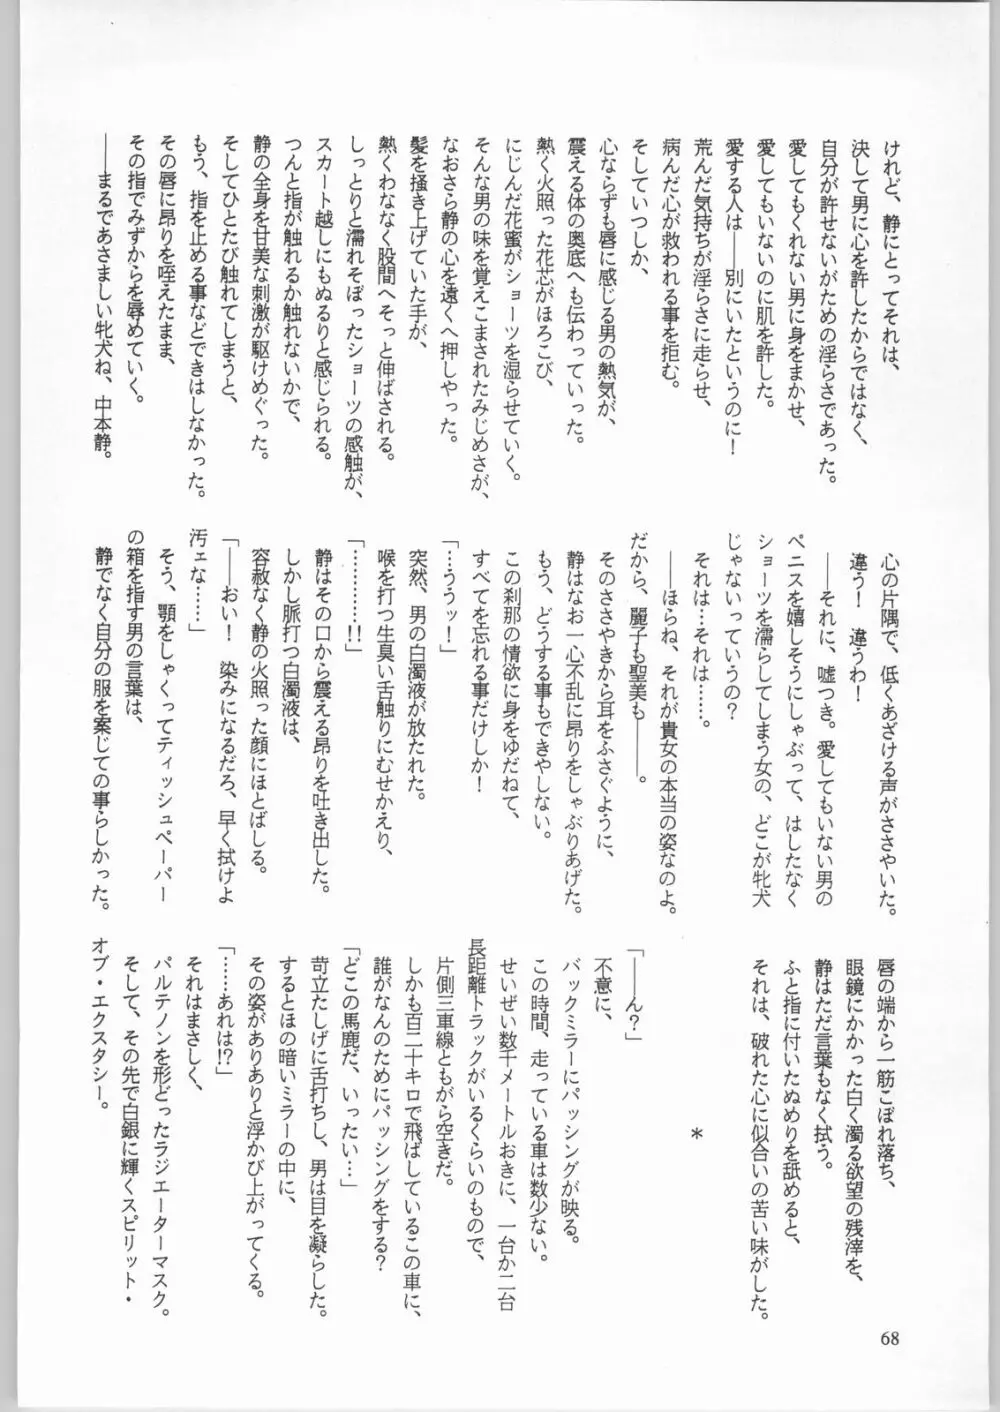 けれど、静にとってそれは、
決して男に心を許したからではなく、
自分が許せないがための淫らさであった。
愛してもくれない男に身をまかせ、
愛してもいないのに肌を許した。
愛する人は――別にいたというのに!
荒んだ気持ちが淫らさに走らせ、
病んだ心が救われる事を拒む。
そしていつしか、
心ならずも唇に感じる男の熱気が、
震える体の奥底へも伝わっていった。
熱く火照った花芯がほころび、
にじんだ花蜜がショーツを湿らせていく。
そんな男の味を覚えこまされたみじめさが、
なおさら静の心を遠くへ押しやった。
髪を掻き上げていた手が、
熱くわななく股間へそっと伸ばされる。
しっとりと濡れそぼったショーツの感触が、
スカート越しにもぬるりと感じられる。
つんと指が触れるか触れないかで、
静の全身を甘美な刺激が駆けめぐった。
そしてひとたび触れてしまうと、
もう、指を止める事などできはしなかった。
その唇に昂りを咥えたまま、
その指でみずからを辱めていく。
――まるであさましい牝犬ね、中本静。
心の片隅で、低くあざける声がささやいた。
違う! 違うわ!
――それに、嘘つき。愛してもいない男の
ペニスを嬉しそうにしゃぶって、はしたなく
ショーツを濡らしてしまう女の、どこが牝犬
じゃないっていうの?
それは…それは……。
――ほらね、それが貴女の本当の姿なのよ。
だから、麗子も聖美も――。
そのささやきから耳をふさぐように、
静はなお一心不乱に昂りをしゃぶりあげた。
もう、どうする事もできやしない。
この刹那の情欲に身をゆだねて、
すべてを忘れる事だけしか!
「…ううッ!」
突然、男の白濁液が放たれた。
喉を打つ生臭い舌触りにむせかえり、
「…………!!」
静はその口から震える昂りを吐き出した。
しかし脈打つ白濁液は、
容赦なく静の火照った顔にほとばしる。
「――おい! 染みになるだろ、早く拭けよ
汚ェな……」
そう、顎をしゃくってティッシュペーパー
の箱を指す男の言葉は、
静でなく自分の服を案じての事らしかった。
唇の端から一筋こぼれ落ち、
眼鏡にかかった白く濁る欲望の残滓を、
静はただ言葉もなく拭う。
ふと指に付いたぬめりを舐めると、
それは、破れた心に似合いの苦い味がした。
*
「――ん?」
不意に、
バックミラーにパッシングが映る。
この時間、走っている車は数少ない。
せいぜい数千メートルおきに、一台か二台
長距離トラックがいるくらいのもので、
片側三車線ともがら空きだ。
しかも百二十キロで飛ばしているこの車に、
誰がなんのためにパッシングをする?
「どこの馬鹿だ、いったい…」
苛立たしげに舌打ちし、男は目を凝らした。
するとほの暗いミラーの中に、
その姿がありありと浮かび上がってくる。
「……あれは!?」
それはまさしく、
パルテノンを形どったラジエーターマスク。
そして、その先で白銀に輝くスピリット・
オブ・エクスタシー。
68